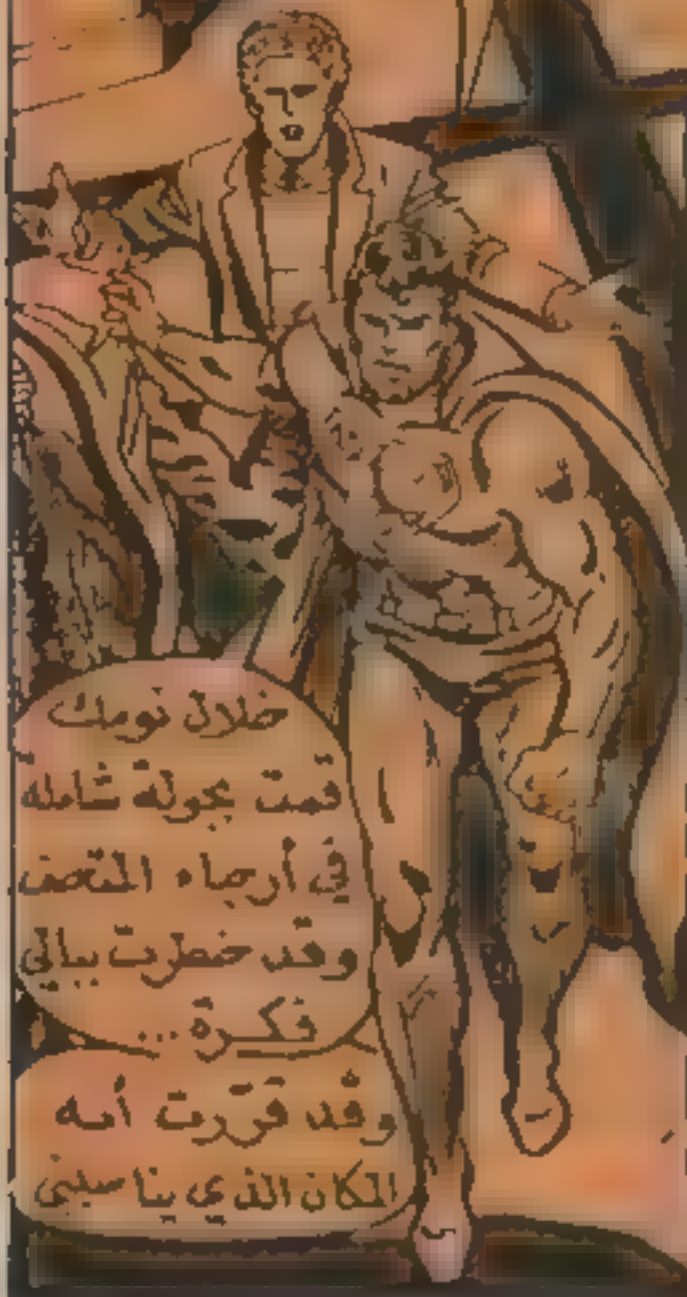 خلال نومك
قمت بجولة شاملة
في أرجاء المتحف
وقد خطرت ببالي
فكرة...
وقد قررت أنه
المكان الذي يناسبني